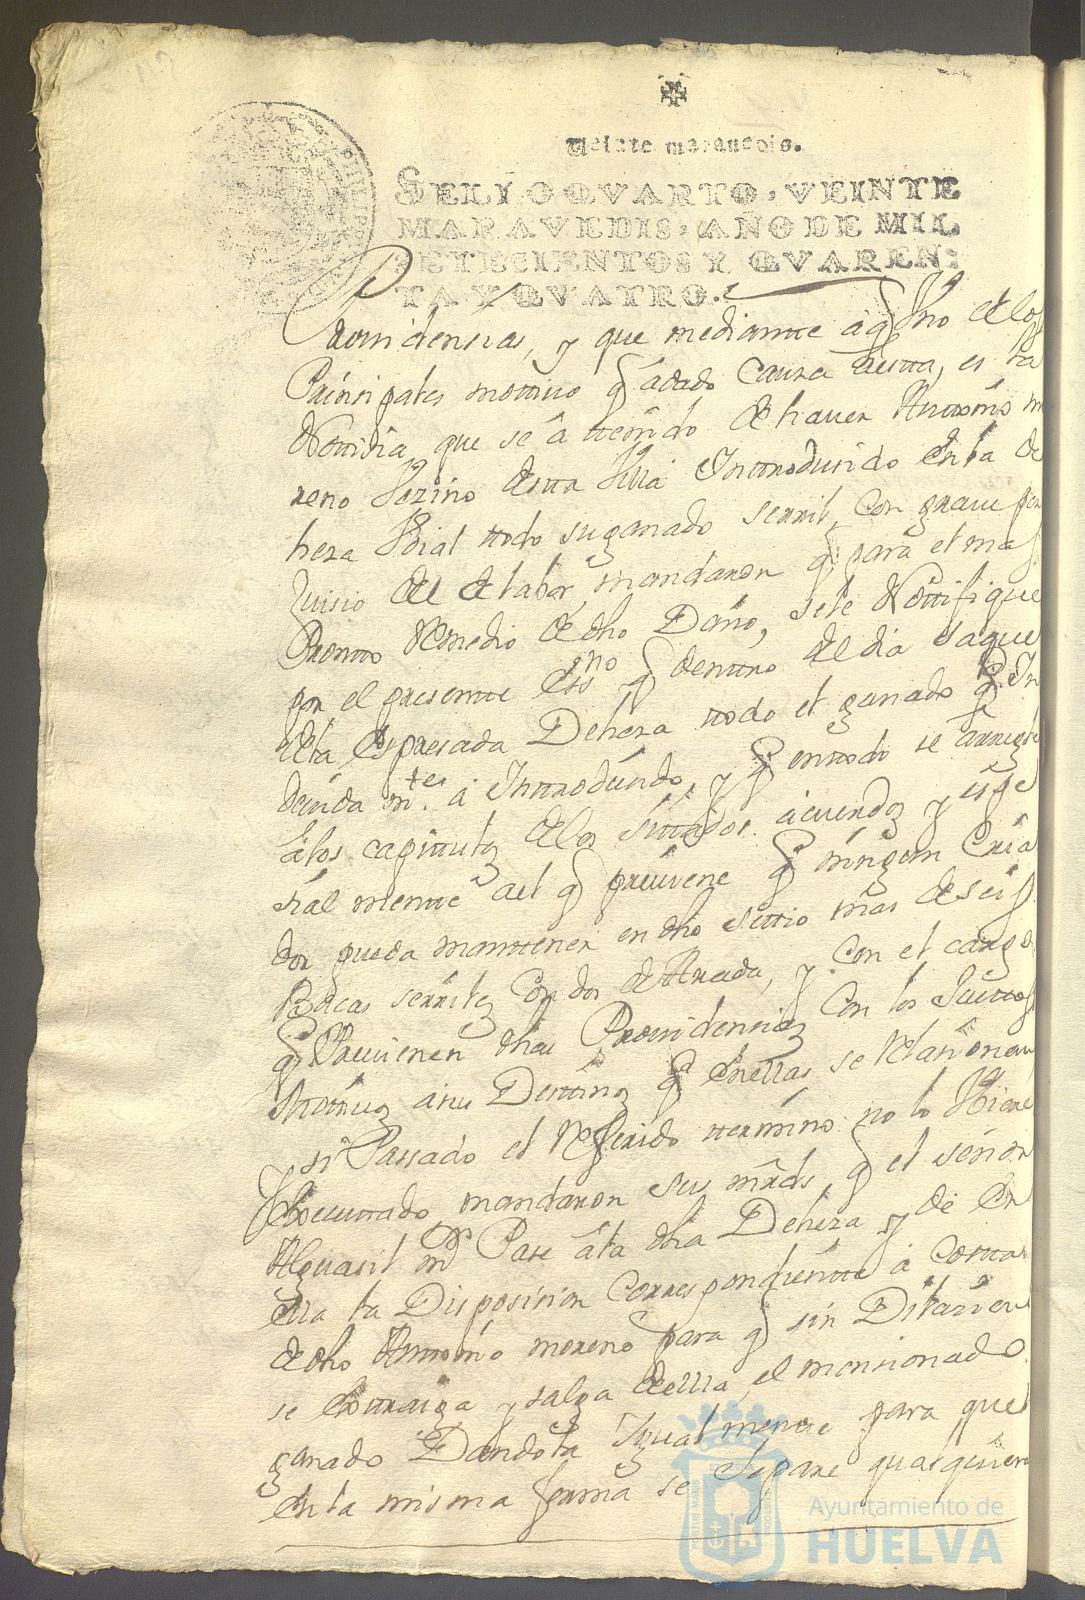 Veinte maravedis.
SELLO QVARTO, VEINTE
MARAVEDIS, AÑO DE MIL
SETECIENTOS Y QVAREN-
TA Y QVATRO.
Providensias, y que mediante a q uno de los
Prinsipales mottivo q a dado Causa a esta, es la
Nottisia que se a ttenido de haver Anttonio mo
reno Vezino desta Villa Inttrodusido en la de
heza Boial ttodo su ganado serril, con grave per
Juisio del de labor, mandaron q para el mas
Prontto Remedio de dho Daño, se le Nottifique
por el presentte Essno q denttro del dia saque
de la Espresada Deheza ttodo el ganado q In
devidamte a Inttrodusido, y q enttodo se arregle
a los capittulos de los sittados acuerdos y espe
sialmentte a el q previene q ningun Cria
dor pueda manttener en dho sittio mas de seis
Bacas serriles Con dos de Arada, y con el cargo
q Previenen dhas Providensias Con los Justtos
Mottivos a sus Desttinos q en ellas se Relasionan
si Passado el Referido ttermino no lo Hiviere
Executtado mandaron sus mrds q el señor
Alguasil mor Pase a la dha Deheza y de en
ella la Disposision Correspondientte a Costta
de dho Anttonio moreno para q sin Dilasion
se Exttraiga y salga de ella, el mensionado
ganado Dandola Igualmentte para que
en la misma forma se Separe qualquiera
Ayuntamiento de
HUELVA